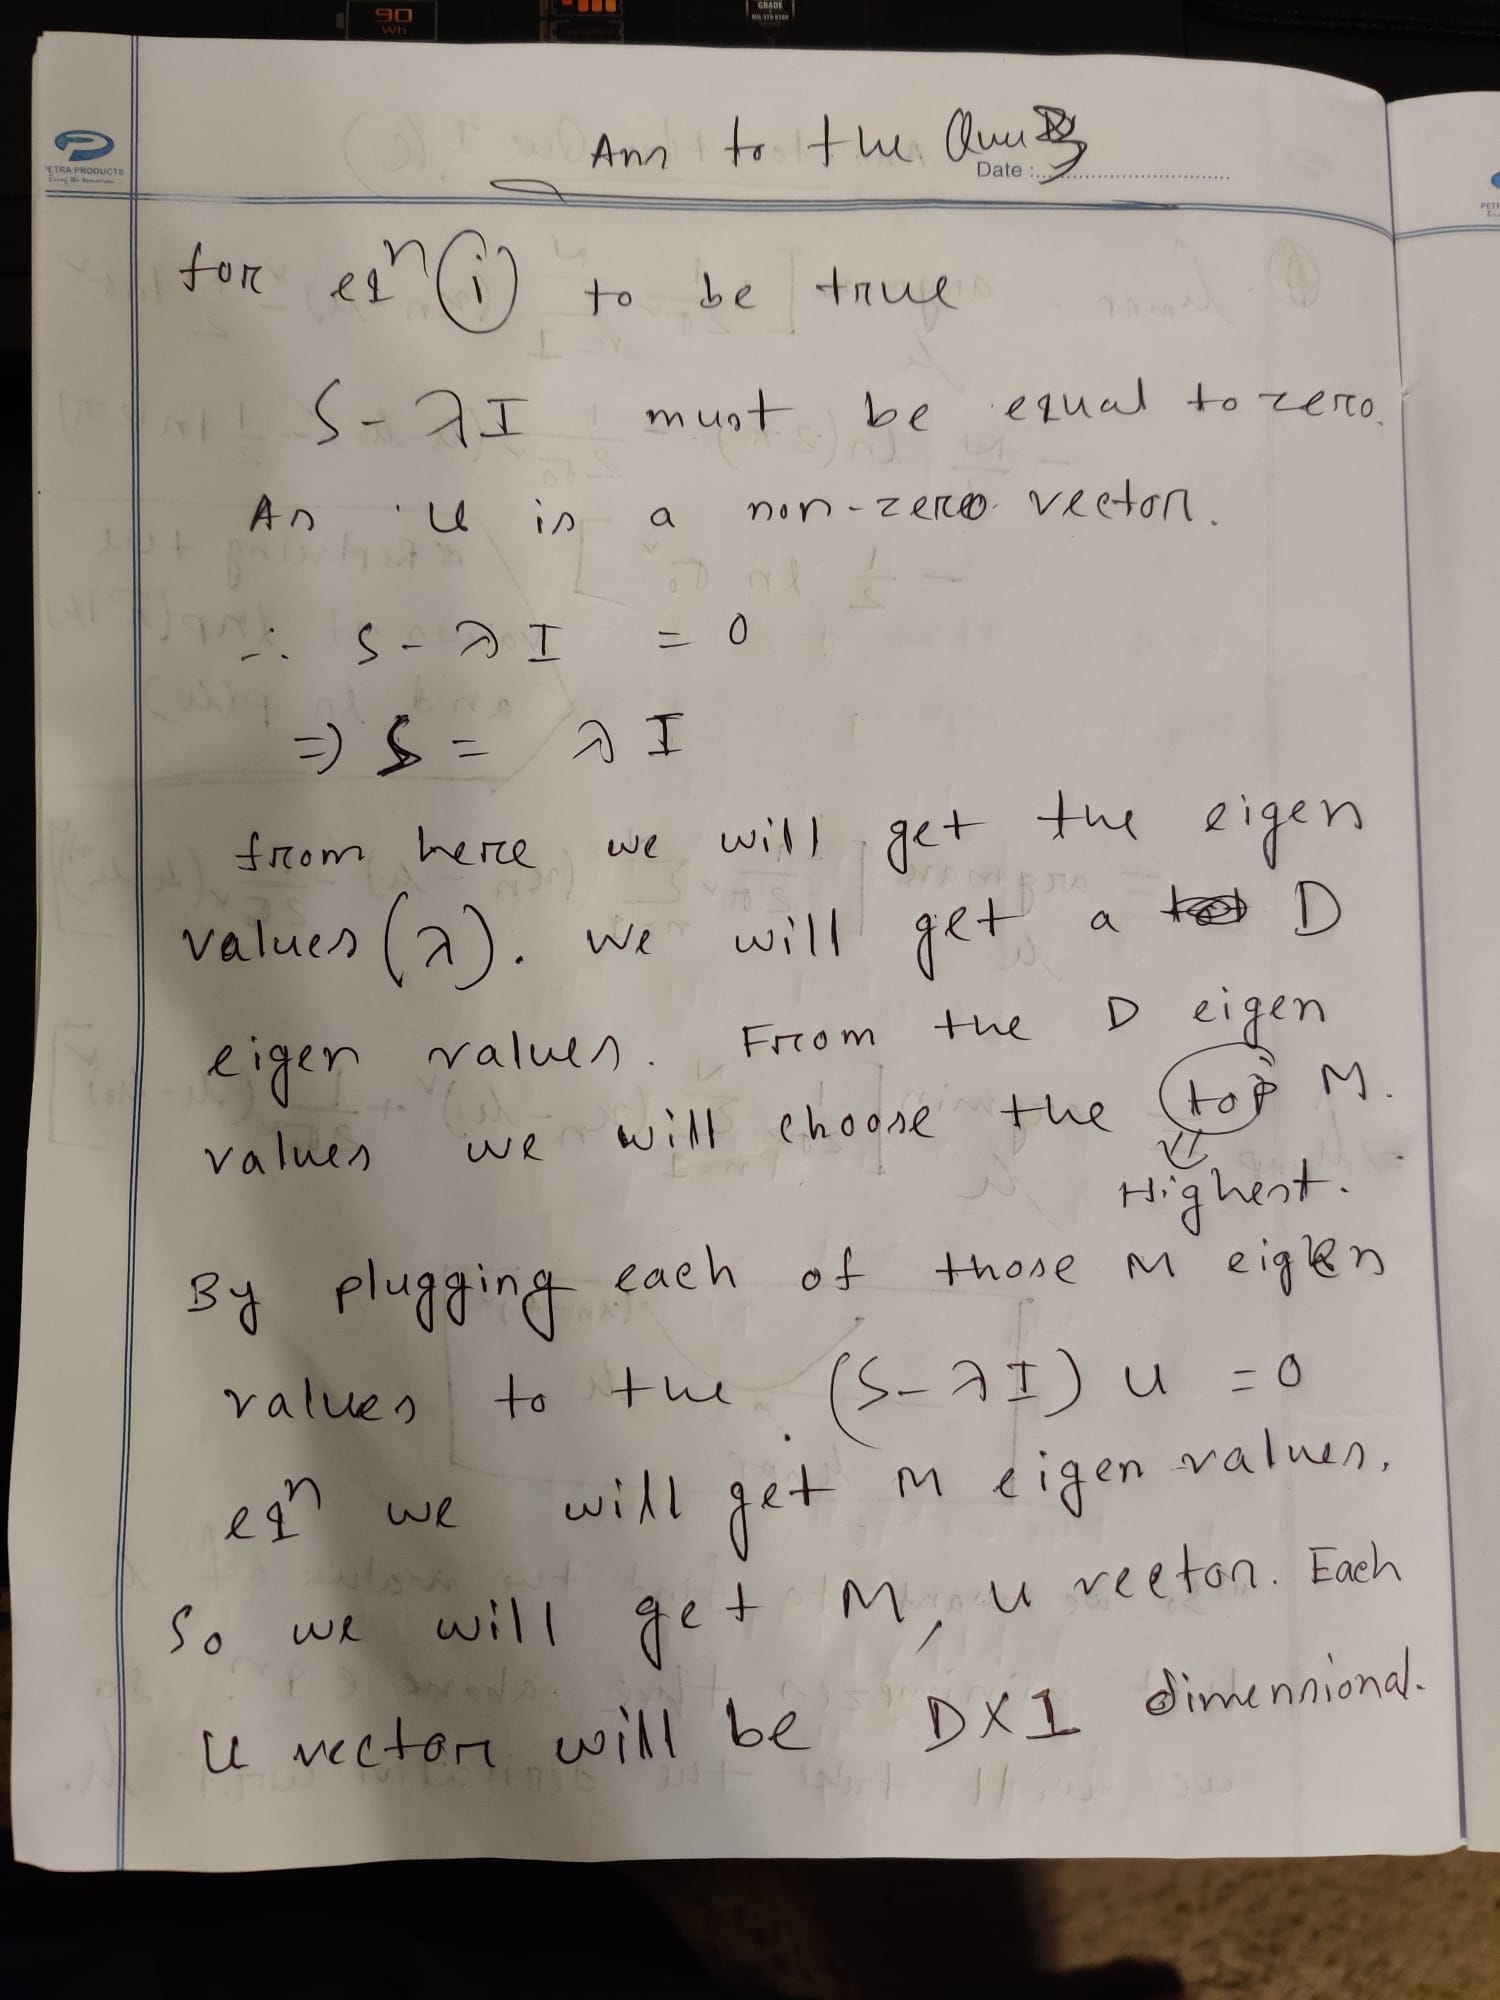 90
Wh
GRADE
MIL-STD 810H
PETRA PRODUCTS
Ans to the Ques 3
Date :
for eqn (i) to be true
S - λI must be equal to zero.
As u is a non-zero vector.
∴ S - λI = 0
⇒ S = λI
from here we will get the eigen
values (λ). we will get a D
eigen values. From the D eigen
values we will choose the top M.
Highest.
By plugging each of those M eigen
values to the (S - λI) u = 0
eqn we will get M eigen values.
So we will get M, u vector. Each
u vector will be D×1 dimensional.